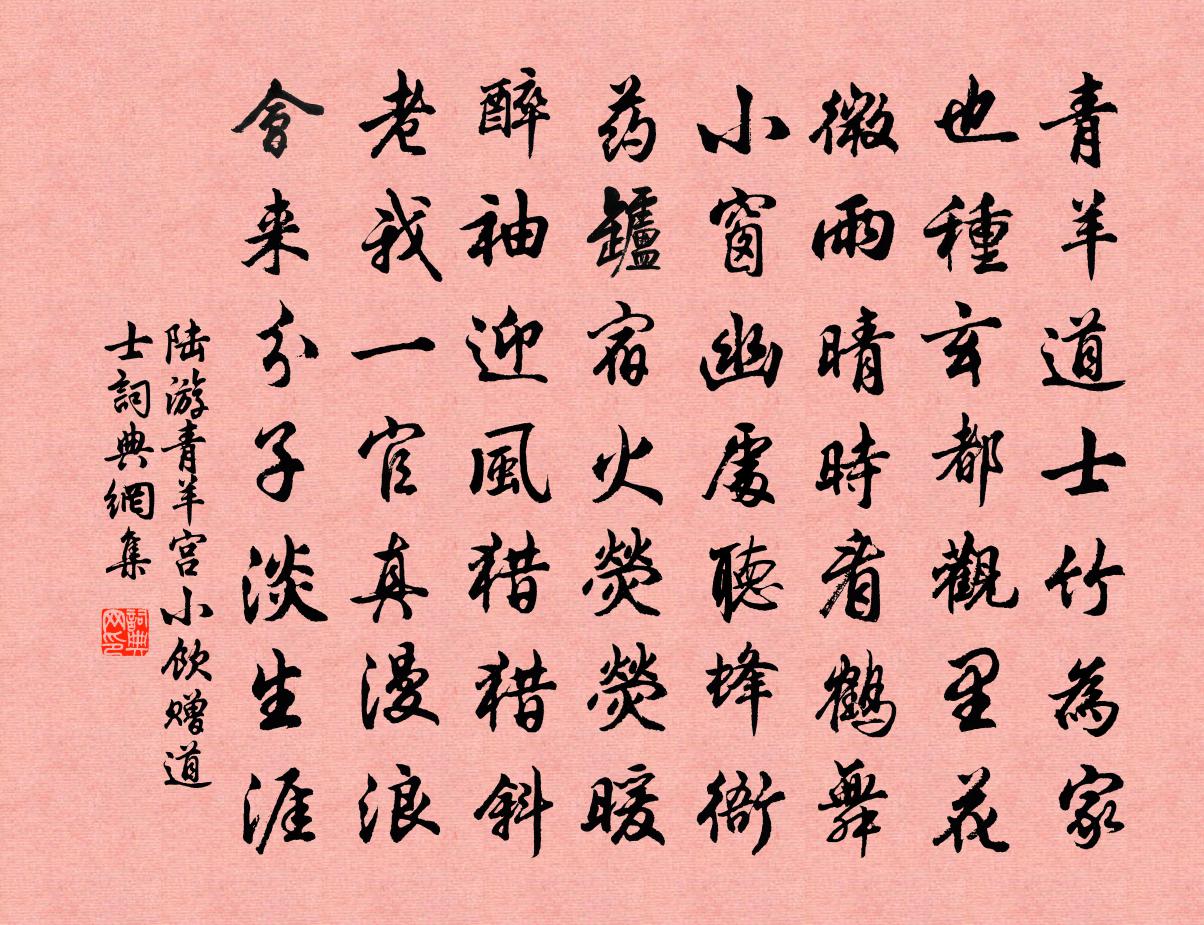 青羊道士竹為家
也種玄都觀里花
微雨晴時看鶴舞
小窗幽處聽蜂衙
药罏宿火熒熒暖
醉袖迎風猎猎斜
老我一官真漫浪
會来分子淡生涯
陆游青羊宫小飲赠道
士詞典網集
詞典
网印